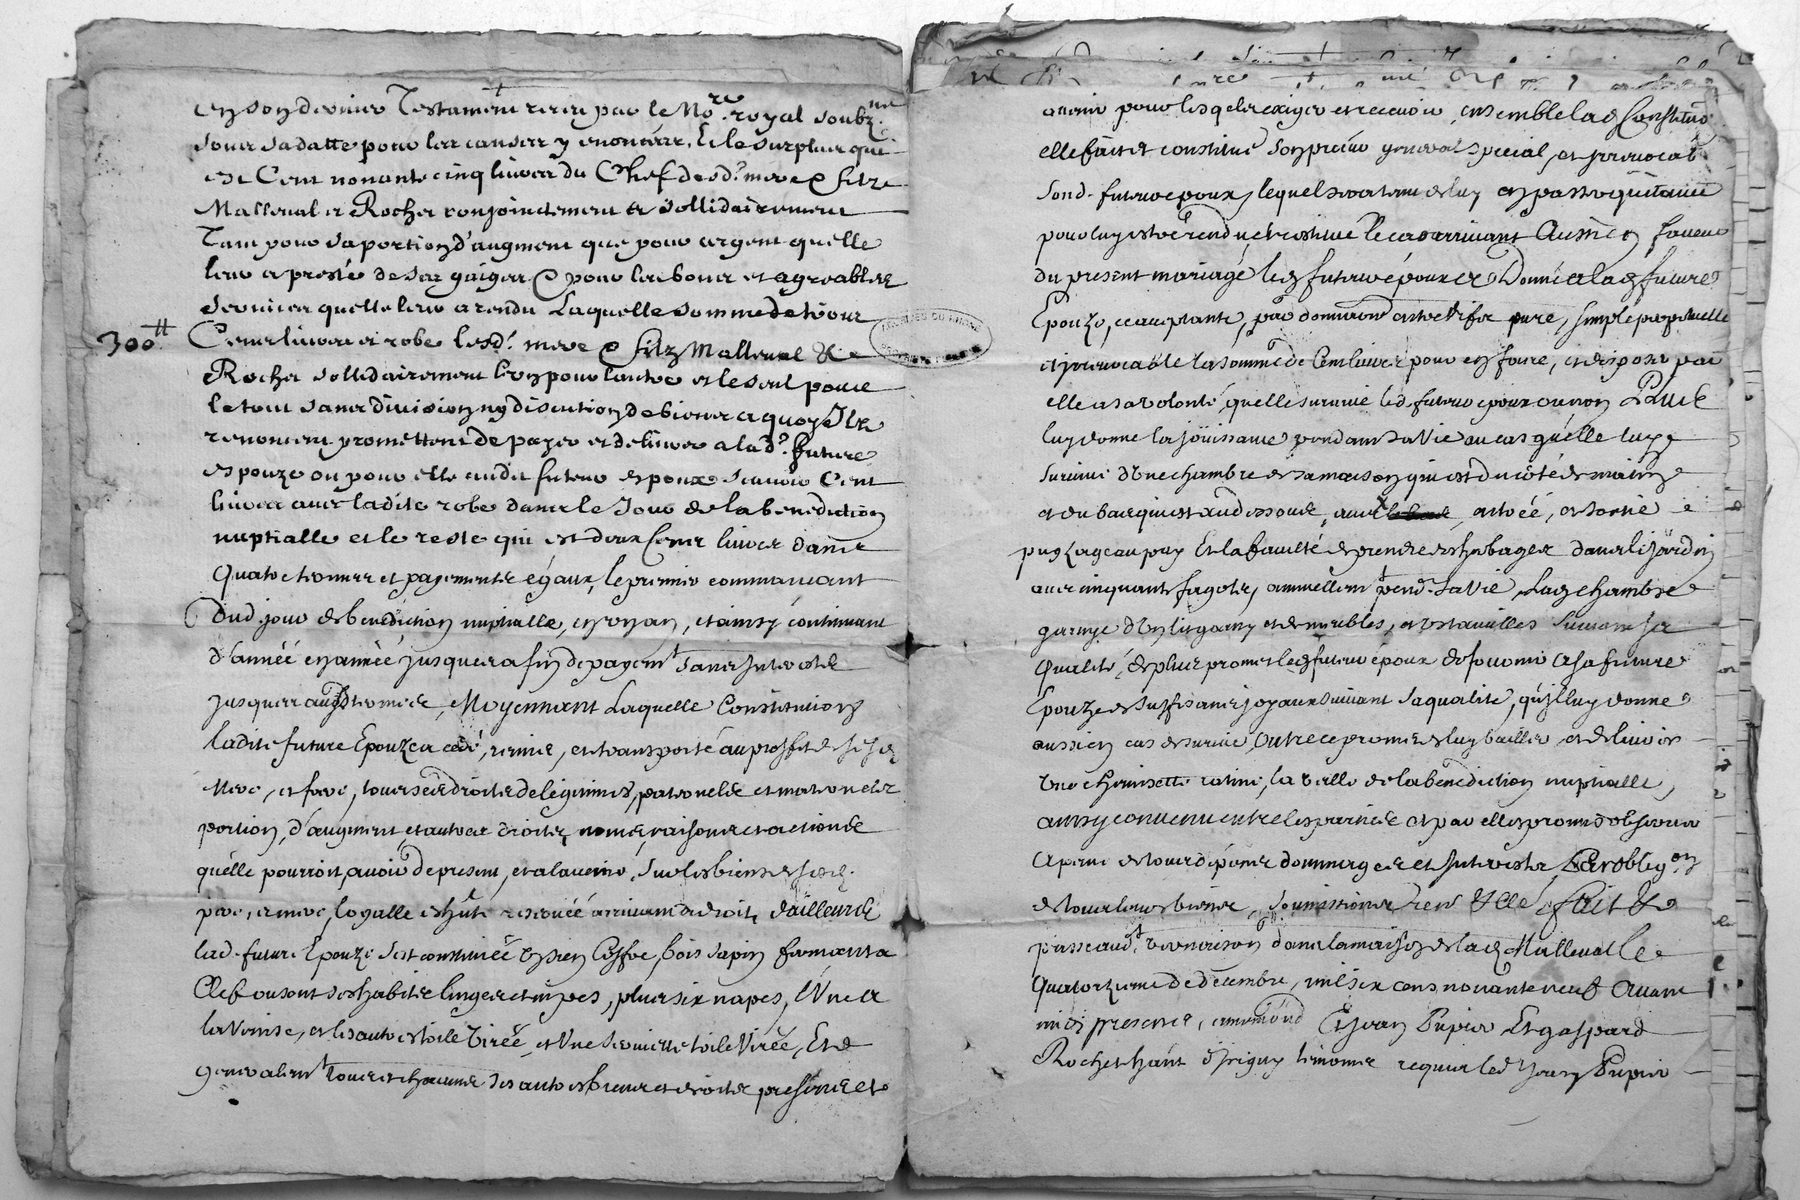 en son dernier Testament receu par le No.re royal soubz.ne
soubz sa datte pour les causes y enoncées. Et le surplus qui
est Cent nonante cinq livres du Chef desd. mere & filz
Malleval et Rochet conjoinctement et sollidairement
Tant pour sa portion d'augment que pour argent quelle
leur a presté de ses gaiges & pour les bons et agreables
services quelle leur a rendu Laquelle somme de trois
300tt
Cents livres et robe lesd. mere & filz Malleval &
Rochet sollidairement lun pour lautre et le seul pour
le tout sans division ny discution de biens a quoy Ilz
renoncent promettent de payer et delivrer a lad. future
espouze ou pour elle audit futur espoux scavoir Cent
livres avec ladite robe dans le Jour de la benediction
nuptialle et le reste qui est deux Cens livres dans
quatre termes et payements egaux, le premier commancant
Dud. jour de benediction nuptialle, en un an, et ainsy continuant
d'année en année jusques a fin de payem.t sans Interestz
jusques ausd. termes, Moyennant Laquelle Constitution
ladite future Epouze a cedé, remis, et transporté au proffit de sesd.
Mere, et frere, tous ses droits de legitimes, paternels et maternels
portion, d'augment, et autres droits, noms, raisons et actions
quelle pourroit avoir de present, et a l'avenir, sur les biens de sesd.
pere, et mere, loyalle eschute reservée arrivant de droit, d'ailleurs
lad. future Epouze s'est constituée un sien Coffre, bois sapin fermant a
Clef ou sont ses habits linges et nipes, plus six napes, l'Une a
la Venise, et les autres toile Virée, et Une serviette toile Virée, Et
generalem.t tous et chacuns ses autres biens et droits presents et
avenir pour lesquels exiger et recevoir, ensemble lad. Constitu.on
elle fait et constitué son procur. general special, et irrevocable
sond. futur epoux, lequel sera tenu de luy en passer quittance
pour luy estre rendue et restitué le cas arrivant Aussi en faveur
du present mariage led. futur époux a Donné a lad. future
Epouze, acceptante, par donnation entre vifs pure, simple perpetuelle
et irrevocable la somme de Cent livres pour en faire, et disposer par
elle a sa volonté, quelle survive led. futur epoux ou non Plus
luy donne la joüissance pendant sa Vie au cas quélle luy
survive d'Une chambre de sa maison qui est du côté de matin
et du bas qui est au dessous, avec entrée, et sortie
puyzage au puy Et la faculté de prendre des herbages dans le jardin
avec cinquante fagots, annuellem.t pend. sa Vie, Lad. chambre
garnye d'Un lit garny et de meubles, et Ustancilles suivant sa
Qualité, de plus promet led. futur époux de fournir a sa future
Epouze de suffisants joyaux suivant sa qualité, qu'il luy donne
aussi en cas de survie, Outre ce promet de luy bailler et delivrer
Une chemisette ratine, la veille de la benediction nuptialle,
ainsy convenu entre les parties et par elles promis d'observer
a peine de tous depens dommages et Interests, Par oblig.on
de tous leurs biens, soumissions ren. & cles fait &
passé aud. Vernaison dans la maison de lad. Malleval le
Quatorzieme de decembre, mil six cens nonante neuf Avant
midi presents, Et Jean Pupier Et gaspard
Rochet hant d'Irigny temoins requis led Jean Pupier